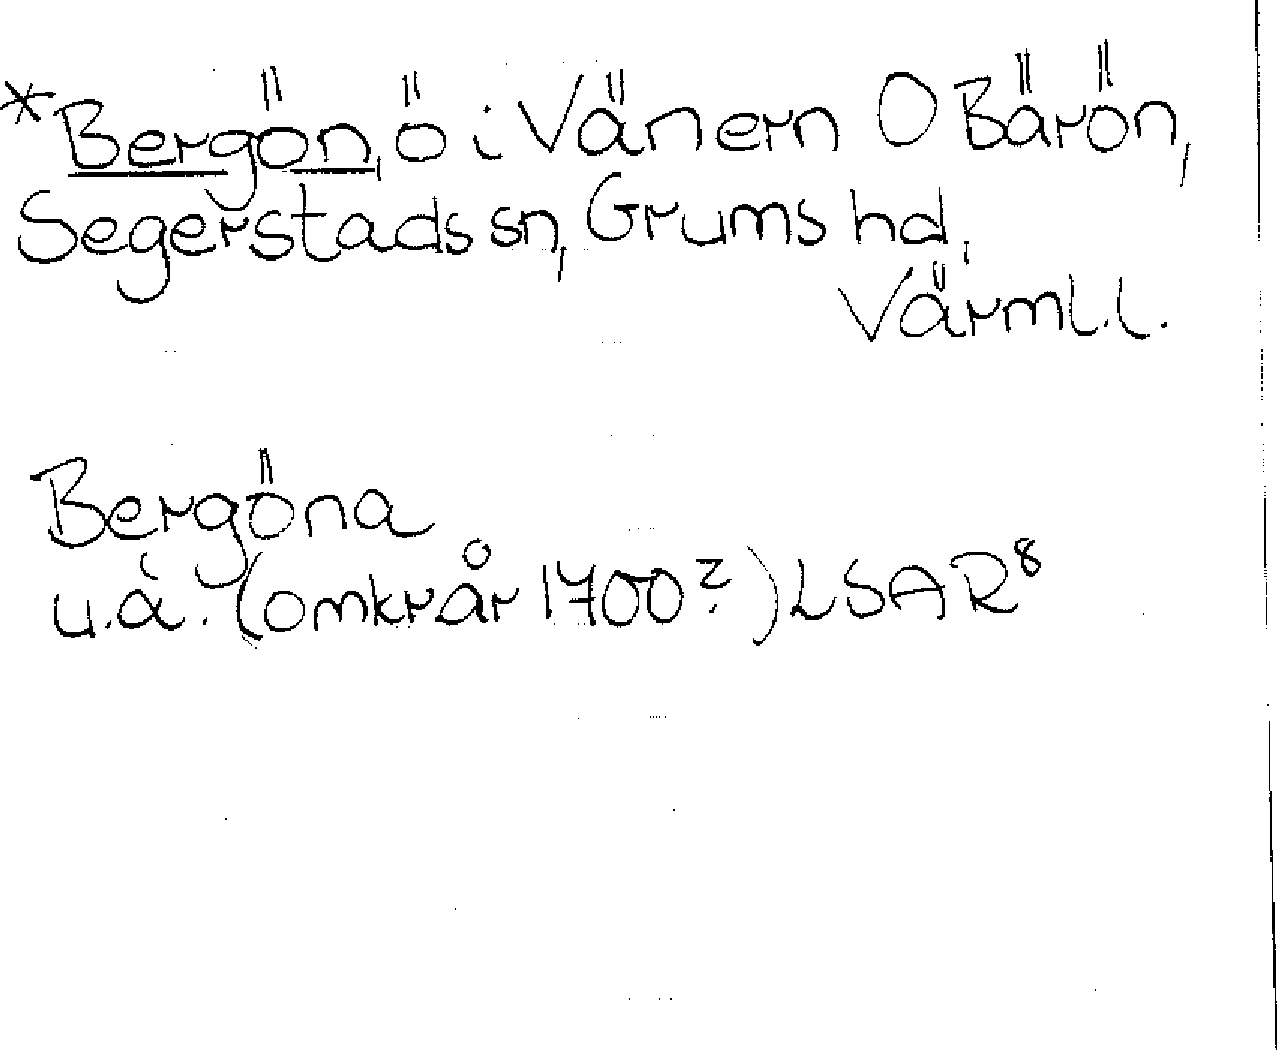 *Bergön, ö i Vänern O Bärön,
Segerstads sn, Grums hd,
Värml. l.
Bergöna
u.å. (omkr år 1700?) LSAR⁸